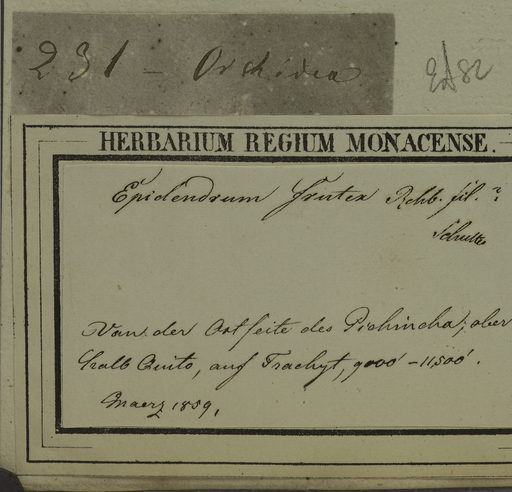 231 - Orchidea
HERBARIUM REGIUM MONACENSE.
Epidendrum frutex Rchb. fil.?
Von der Ostseite des Pichincha, ober
halb Quito, auf Trachyt, 9000' - 11500'.
Maerz 1859,